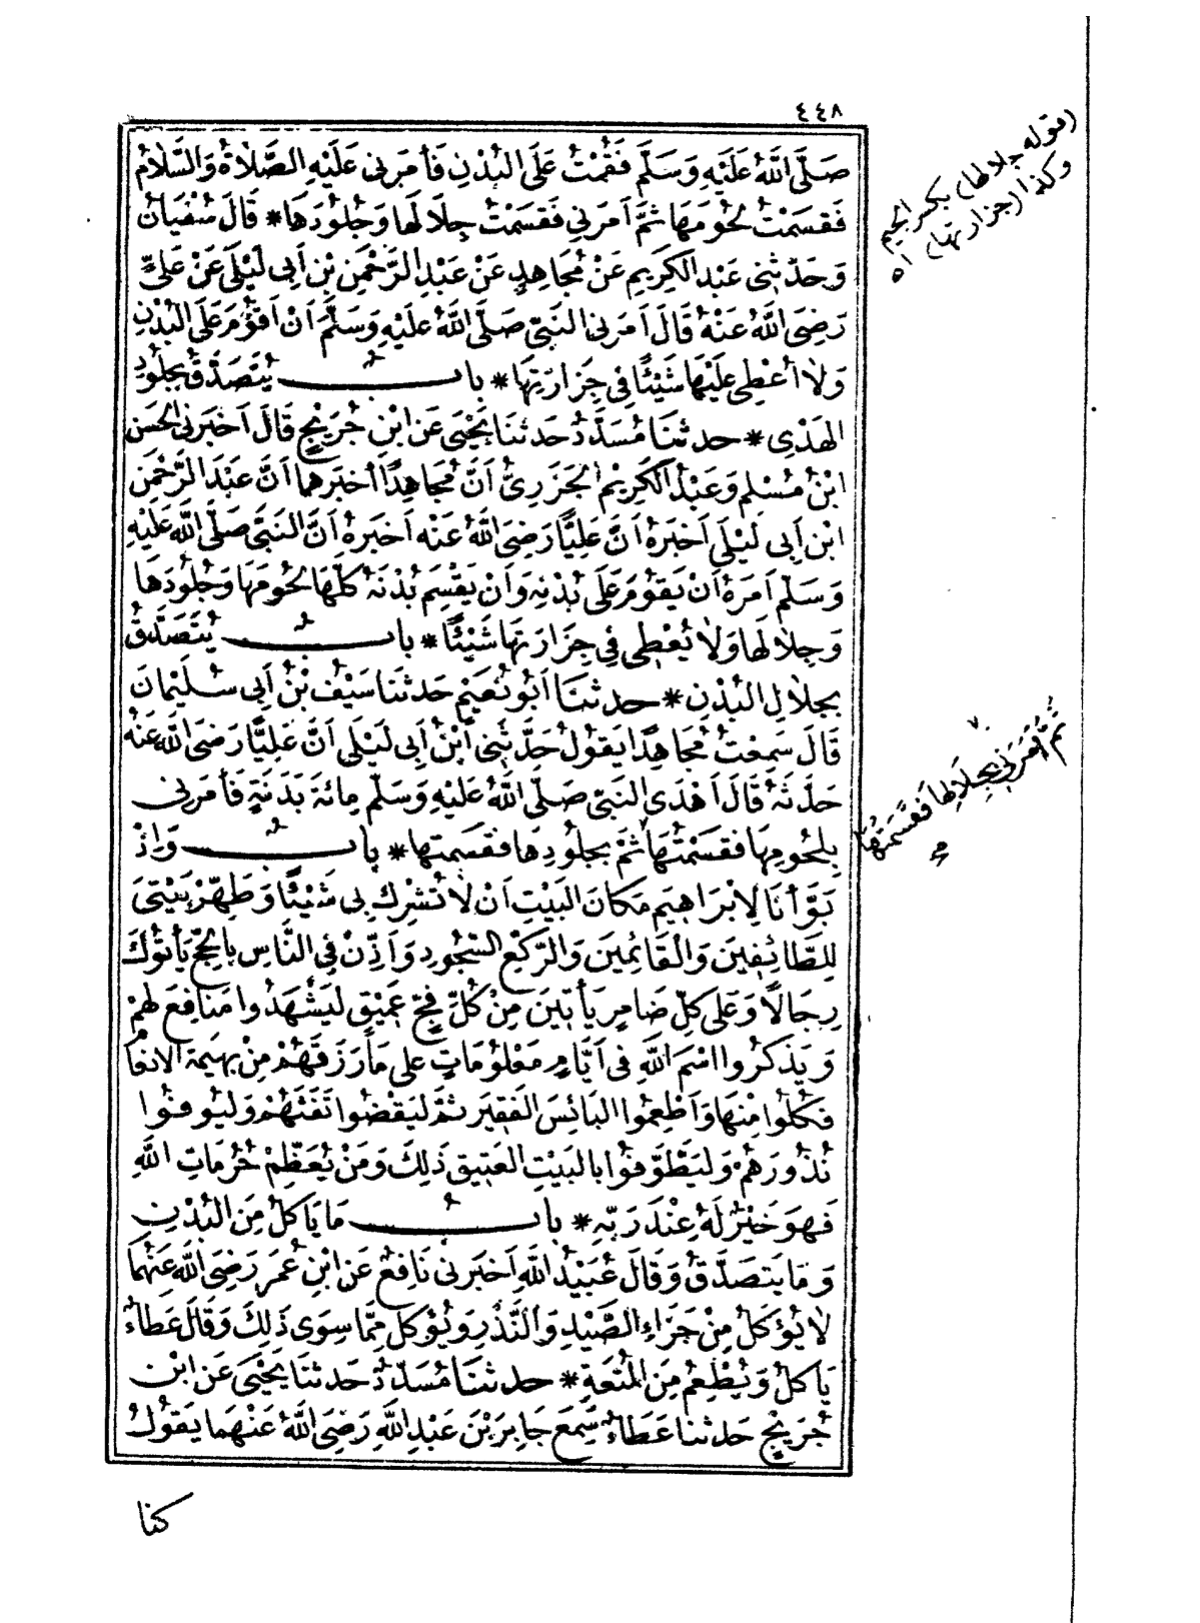 ٤٤٨
صَلَّى اللَّهُ عَلَيْهِ وَسَلَّمَ فَقُمْتُ عَلَى الْبُدْنِ فَأَمَرَنِى عَلَيْهِ الصَّلَاةُ وَالسَّلَامُ
فَقَسَمْتُ لُحُومَهَا ثُمَّ أَمَرَنِى فَقَسَمْتُ جِلَالَهَا وَجُلُودَهَا * قَالَ سُفْيَانُ
وَحَدَّثَنِى عَبْدُ الْكَرِيمِ عَنْ مُجَاهِدٍ عَنْ عَبْدِ الرَّحْمَنِ بْنِ أَبِى لَيْلَى عَنْ عَلِىٍّ
رَضِىَ اللَّهُ عَنْهُ قَالَ أَمَرَنِى النَّبِىُّ صَلَّى اللَّهُ عَلَيْهِ وَسَلَّمَ أَنْ أَقُومَ عَلَى الْبُدْنِ
وَلَا أُعْطِى عَلَيْهَا شَيْئًا فِى جِزَارَتِهَا * بابٌ يُتَصَدَّقُ بِجُلُودِ
الْهَدْىِ * حدثنا مُسَدَّدٌ حَدثنَا يَحْيَى عَنِ ابْنِ جُرَيْجٍ قَالَ أَخْبَرَنِى الْحَسَن
ابْنُ مُسْلِمٍ وَعَبْدُ الْكَرِيْمِ الْجَزَرِىُّ أَنَّ مُجَاهِدًا أَخْبَرَهُمَا أَنَّ عَبْدَ الرَّحْمَنِ
ابْنَ أَبِى لَيْلَى أَخْبَرَهُ أَنَّ عَلِيًّا رَضِىَ اللَّهُ عَنْه أَخْبَرَهُ أَنَّ النَّبِىَّ صَلَّى اللَّهُ عَلَيْهِ
وَسَلَّم أَمَرَهُ أَنْ يَقُومَ عَلَى بُدْنِهِ وَأَنْ يَقْسِمَ بُدْنَهُ كُلَّهَا لُحُومَهَا وَجُلُودَهَا
وَجِلَالَهَا وَلَا يُعْطِى فِى جِزَارَتِهَا شَيْئًا * بابٌ يُتَصَدَّقُ
بِجِلَالِ الْبُدْنِ * حدثنا أَبُو نُعَيْمٍ حَدثنَا سَيْفُ بْنُ أَبِى سُلَيْمَانَ
قَالَ سَمِعْتُ مُجَاهِدًا يَقُولُ حَدَّثَنِى ابْنُ أَبِى لَيْلَى أَنَّ عَلِيًّا رَضِىَ اللَّه عَنْهُ
حَدَّثَهُ قَالَ أَهْدَى النَّبِىُّ صَلَّى اللَّهُ عَلَيْهِ وَسَلَّم مِائَةَ بَدَنَةٍ فَأَمَرَنِى
بِلُحُومِهَا فَقَسَمْتُهَا ثُمَّ بِجُلُودِهَا فقَسَمتها * بابٌ وَإِذْ
بَوَّأْنَا لِإِبْرَاهِيمَ مَكَانَ الْبَيْتِ أَنْ لَا تُشْرِكْ بِى شَيْئًا وَطَهِّرْ بَيْتِىَ
لِلطَّائِفِينَ وَالْقَائِمِينَ وَالرُّكَّعِ السُّجُودِ وَأَذِّنْ فِى النَّاسِ بِالْحَجِّ يَأْتُوكَ
رِجَالًا وَعَلَى كُلِّ ضَامِرٍ يَأْتِينَ مِنْ كُلِّ فَجٍّ عَمِيْقٍ لِيَشْهَدُوا مَنَافِعَ لَهُمْ
وَيَذْكُرُوا اسْمَ اللَّهِ فِى أَيَّامٍ مَعْلُومَاتٍ عَلَى مَا رَزَقَهُمْ مِنْ بَهِيمَةِ الانعا
فَكُلُوا مِنْهَا وَأَطْعِمُوا الْبَائِسَ الْفَقِيرَ ثُمَّ لْيَقْضُوا تَفَثَهُمْ وَلْيُوفُوا
نُذُورَهُمْ وَلْيَطَّوَّفُوا بِالْبَيْتِ الْعَتِيقِ ذَلِكَ وَمَنْ يُعَظِّمْ حُرُمَاتِ اللَّهِ
فَهُوَ خَيْرٌ لَهُ عِنْدَ رَبِّهِ * بابٌ مَا يَأْكُلُ مِنَ الْبُدْنِ
وَمَا يَتَصَدَّقُ وَقَالَ عُبَيْدُ اللَّهِ أَخْبَرَنِى نَافِعٌ عَنِ ابْنِ عُمَرَ رَضِىَ اللَّه عَنْهُمَا
لَا يُؤْكَلُ مِنْ جَزَاءِ الصَّيْدِ وَالنَّذْرِ وَيُؤْكَلُ مِمَّا سِوَى ذَلِكَ وَقَالَ عَطَاءٌ
يَأْكُلُ وَيُطْعِمُ مِنَ الْمُتْعَةِ * حدثنا مُسَدَّدٌ حَدثنَا يَحْيَى عَنِ ابْنِ
جُرَيْجٍ حَدثنا عَطَاءٌ سَمِعَ جَابِرَ بْنَ عَبْدِ اللَّهِ رَضِىَ اللَّهُ عَنْهُمَا يَقُولُ
كنا
(قوله جلالها) بكسر الجيم
وكذا (جزارتها) اه
ثُمَّ أَمَرَنِى بِجِلَالِهَا فَقَسَمْتُهَا